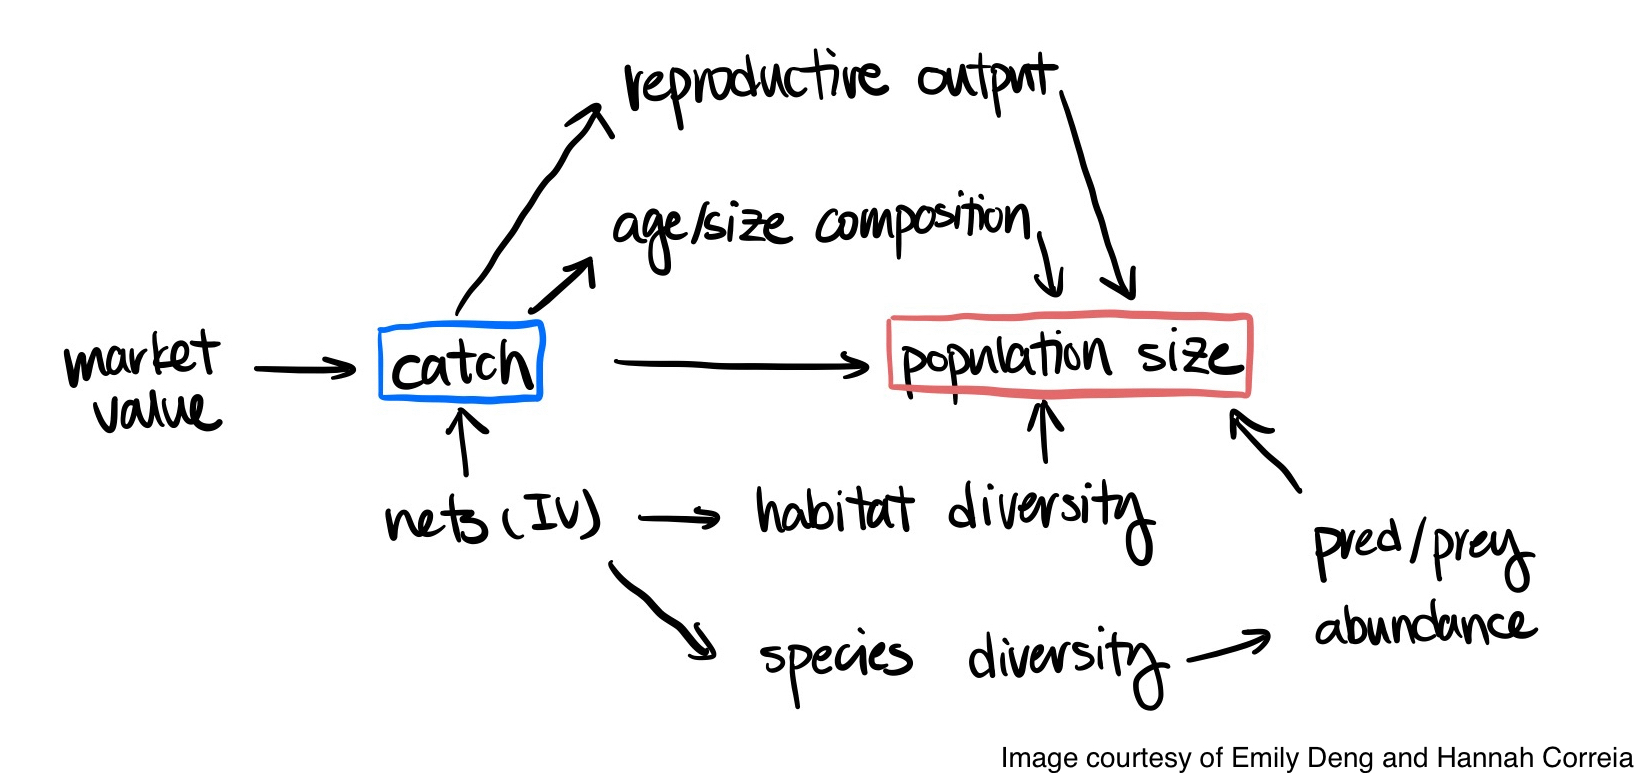 reproductive output
age/size composition
market
value
catch
population size
nets (IV)
habitat diversity
pred/prey
abundance
species diversity
Image courtesy of Emily Deng and Hannah Correia